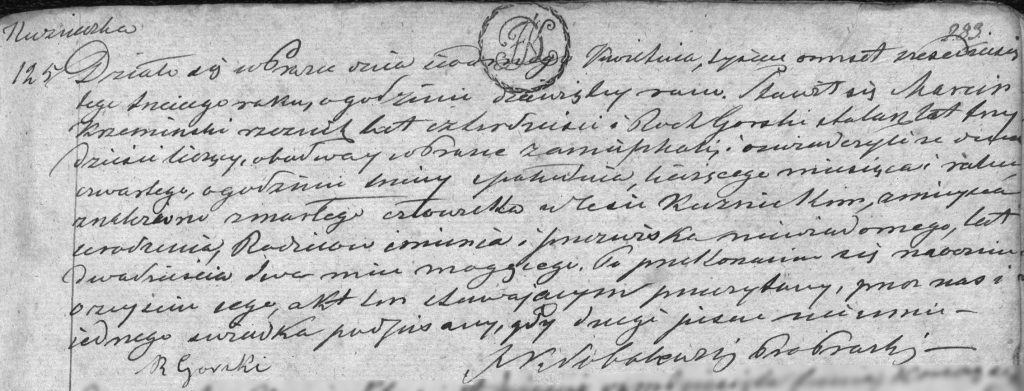 Kuźniczka
293
125 Działo się w Brańsku dnia Kwietnia, tysiąc osmset sześćdziesią
tego trzeciego roku, o godzinie dziewiątej rano. Stawił się Marcin
Krzemiński rzeźnik lat czterdzieści i Roch Gorski stolarz lat trzy
dzieści liczący, obadway w zamieszkali, i oswiadczyli że dnia
czwartego, o godzinie trzeciej z południa, bieżącego miesiąca i roku
znaleziono zmarłego człowieka w lesie Kuznickim, z miejsca
urodzenia, Rodziców imienia i nazwiska niewiadomego, lat
dwadzieścia dwa mieć mogącego. Po przekonaniu się naocznie
o zejściu jego, akt ten stawającym przeczytany, przez nas i
jednego świadka podpisany, gdy drugi pisać nie umie —
R Gorski